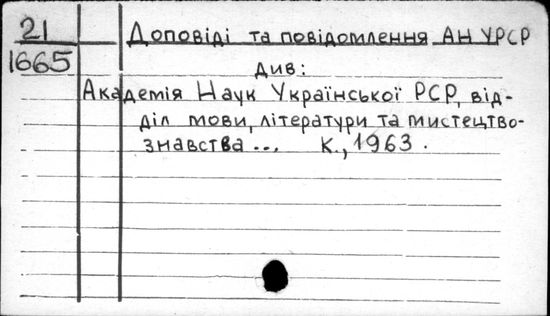 21
1665
Доповіді та повідомлення АН УРСР
див:
Академія Наук Української РСР, від-
діл мови, літератури та мистецтво-
знавства ... К., 1963.